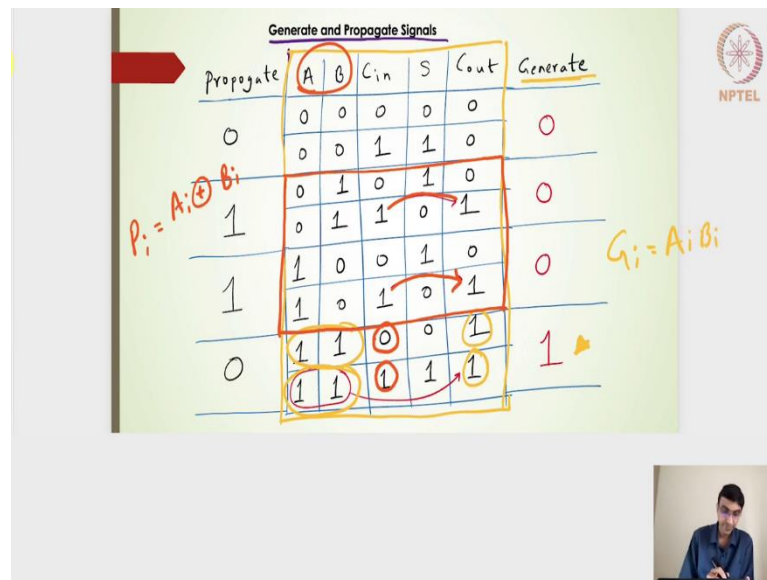 Generate and Propagate Signals
NPTEL
Propogate A B Cin S Cout Generate
0 0 0 0 0 0 0
0 0 1 1 0
1 0 1 0 1 0 0
0 1 1 0 1
1 1 0 0 1 0 0
1 0 1 0 1
0 1 1 0 0 1 1
1 1 1 1 1
Pi = Ai ⊕ Bi
Gi = AiBi